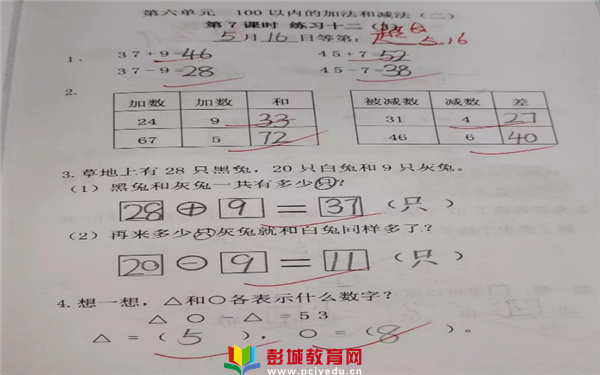 第六单元 100以内的加法和减法(二)
第7课时 练习十二(3)
5月16日等第: 5.16
1. 37+9=46 45+7=52
37-9=28 45-7=38
2.
加数 加数 和 被减数 减数 差
24 9 33 31 4 27
67 5 72 46 6 40
3.草地上有28只黑兔,20只白兔和9只灰兔。
(1)黑兔和灰兔一共有多少只?
28+9=37(只)
(2)再来多少只灰兔就和白兔同样多了?
20-9=11(只)
4.想一想,△和○各表示什么数字?
△○-△=53
△=(5),○=(8)。
彭城教育网
www.pcjyedu.cn